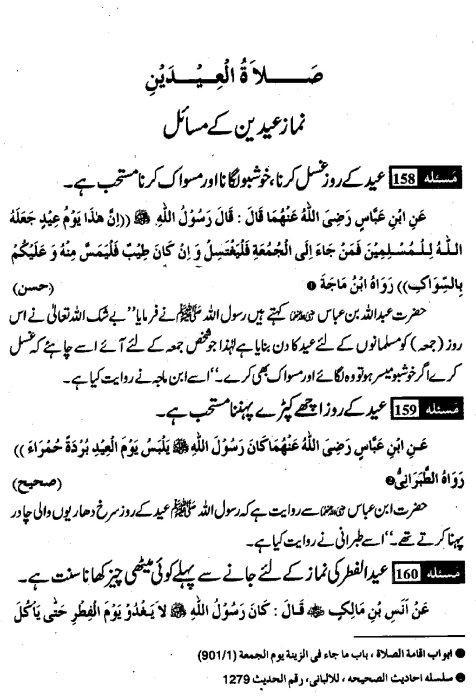 صَلَاةُ الْعِيْدَيْنِ
نماز عیدین کے مسائل
مَسئله 158 عید کے روز غسل کرنا، خوشبو لگانا اور مسواک کرنا مستحب ہے۔
عَنِ ابْنِ عَبَّاسٍ رَضِىَ اللّٰهُ عَنْهُمَا قَالَ : قَالَ رَسُوْلُ اللّٰهِ ﷺ ((اِنَّ هٰذَا يَوْمُ عِيْدٍ جَعَلَهُ
اللّٰهُ لِلْمُسْلِمِيْنَ فَمَنْ جَاءَ اِلَى الْجُمُعَةِ فَلْيَغْتَسِلْ وَ اِنْ كَانَ طِيْبٌ فَلْيَمَسَّ مِنْهُ وَ عَلَيْكُمْ
بِالسِّوَاكِ)) رَوَاهُ ابْنُ مَاجَةَ ❶ (حسن)
حضرت عبداللہ بن عباس رضی اللہ عنہما کہتے ہیں رسول اللہ ﷺ نے فرمایا ”بے شک اللہ تعالیٰ نے اس
روز (جمعہ) کو مسلمانوں کے لئے عید کا دن بنایا ہے لہٰذا جو شخص جمعہ کے لئے آئے اسے چاہئے کہ غسل
کرے اگر خوشبو میسر ہو تو وہ لگائے اور مسواک بھی کرے۔“ اسے ابن ماجہ نے روایت کیا ہے۔
مَسئله 159 عید کے روز اچھے کپڑے پہننا مستحب ہے۔
عَنِ ابْنِ عَبَّاسٍ رَضِىَ اللّٰهُ عَنْهُمَا كَانَ رَسُوْلُ اللّٰهِ ﷺ يَلْبَسُ يَوْمَ الْعِيْدِ بُرْدَةً حَمْرَاءَ ))
رَوَاهُ الطَّبَرَانِىُّ ❷ (صحيح)
حضرت ابن عباس رضی اللہ عنہما سے روایت ہے کہ رسول اللہ ﷺ عید کے روز سرخ دھاریوں والی چادر
پہنا کرتے تھے۔“ اسے طبرانی نے روایت کیا ہے۔
مَسئله 160 عید الفطر کی نماز کے لئے جانے سے پہلے کوئی میٹھی چیز کھانا سنت ہے۔
عَنْ اَنَسِ بْنِ مَالِكٍ ﷺ قَالَ : كَانَ رَسُوْلُ اللّٰهِ ﷺ لاَ يَغْدُوْ يَوْمَ الْفِطْرِ حَتّٰى يَاْكُلَ
❶ ابواب اقامة الصلاة ، باب ما جاء فى الزينة يوم الجمعة (901/1)
❷ سلسله احاديث الصحيحه ، للالبانى، رقم الحديث 1279